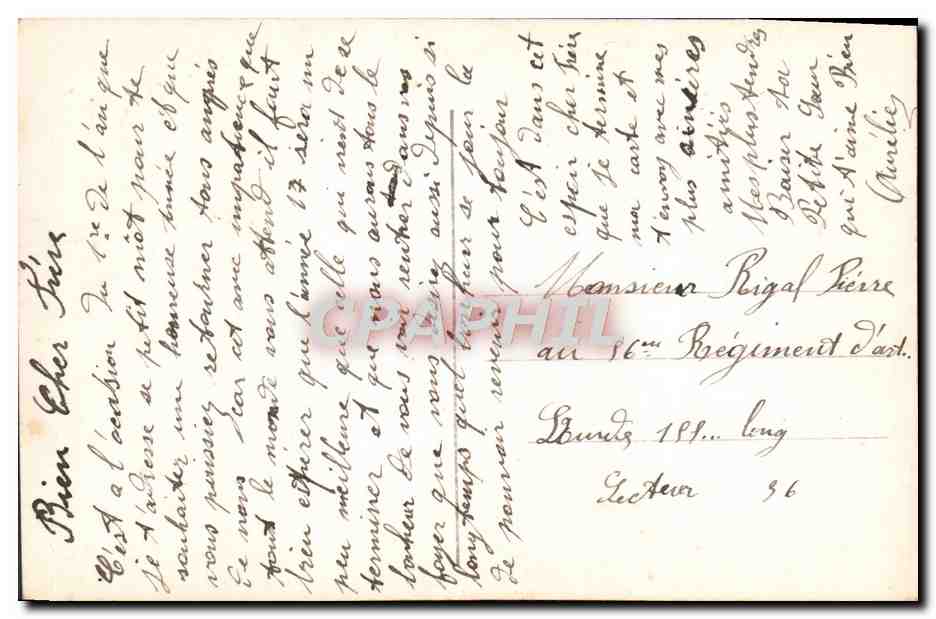 Bien Cher Frère
C'est a l'ocasion du 1re de l'an que
je t'adresse se petit môt pour te
souhaiter un heureuse année et que
vous puissiez retourner tous auprès
de nous car cet avec impatience que
tout le monde vous attend il faut
bien espérer que l'année 17 sera un
peu meilleure que celle qui vient de se
terminer et que nous aurons tous le
bonheur de vous voir rentrer dans vos
foyer que vous désirez aussi depuis si
longtemps quel bonheur se jour la
de pouvoir revenir pour toujour
C'est dans cet
espoir cher frère
que je termine
ma carte et
t'envoy avec mes
plus sincères
amitiés
Mes plus tendres
Baiser ta
Petite Sœur
qui t'aime Bien
Aurélie
Monsieur Rigal Piérre
au 56me Régiment d'art.
Lourde 155... long
Secteur 56
CPAPHIL